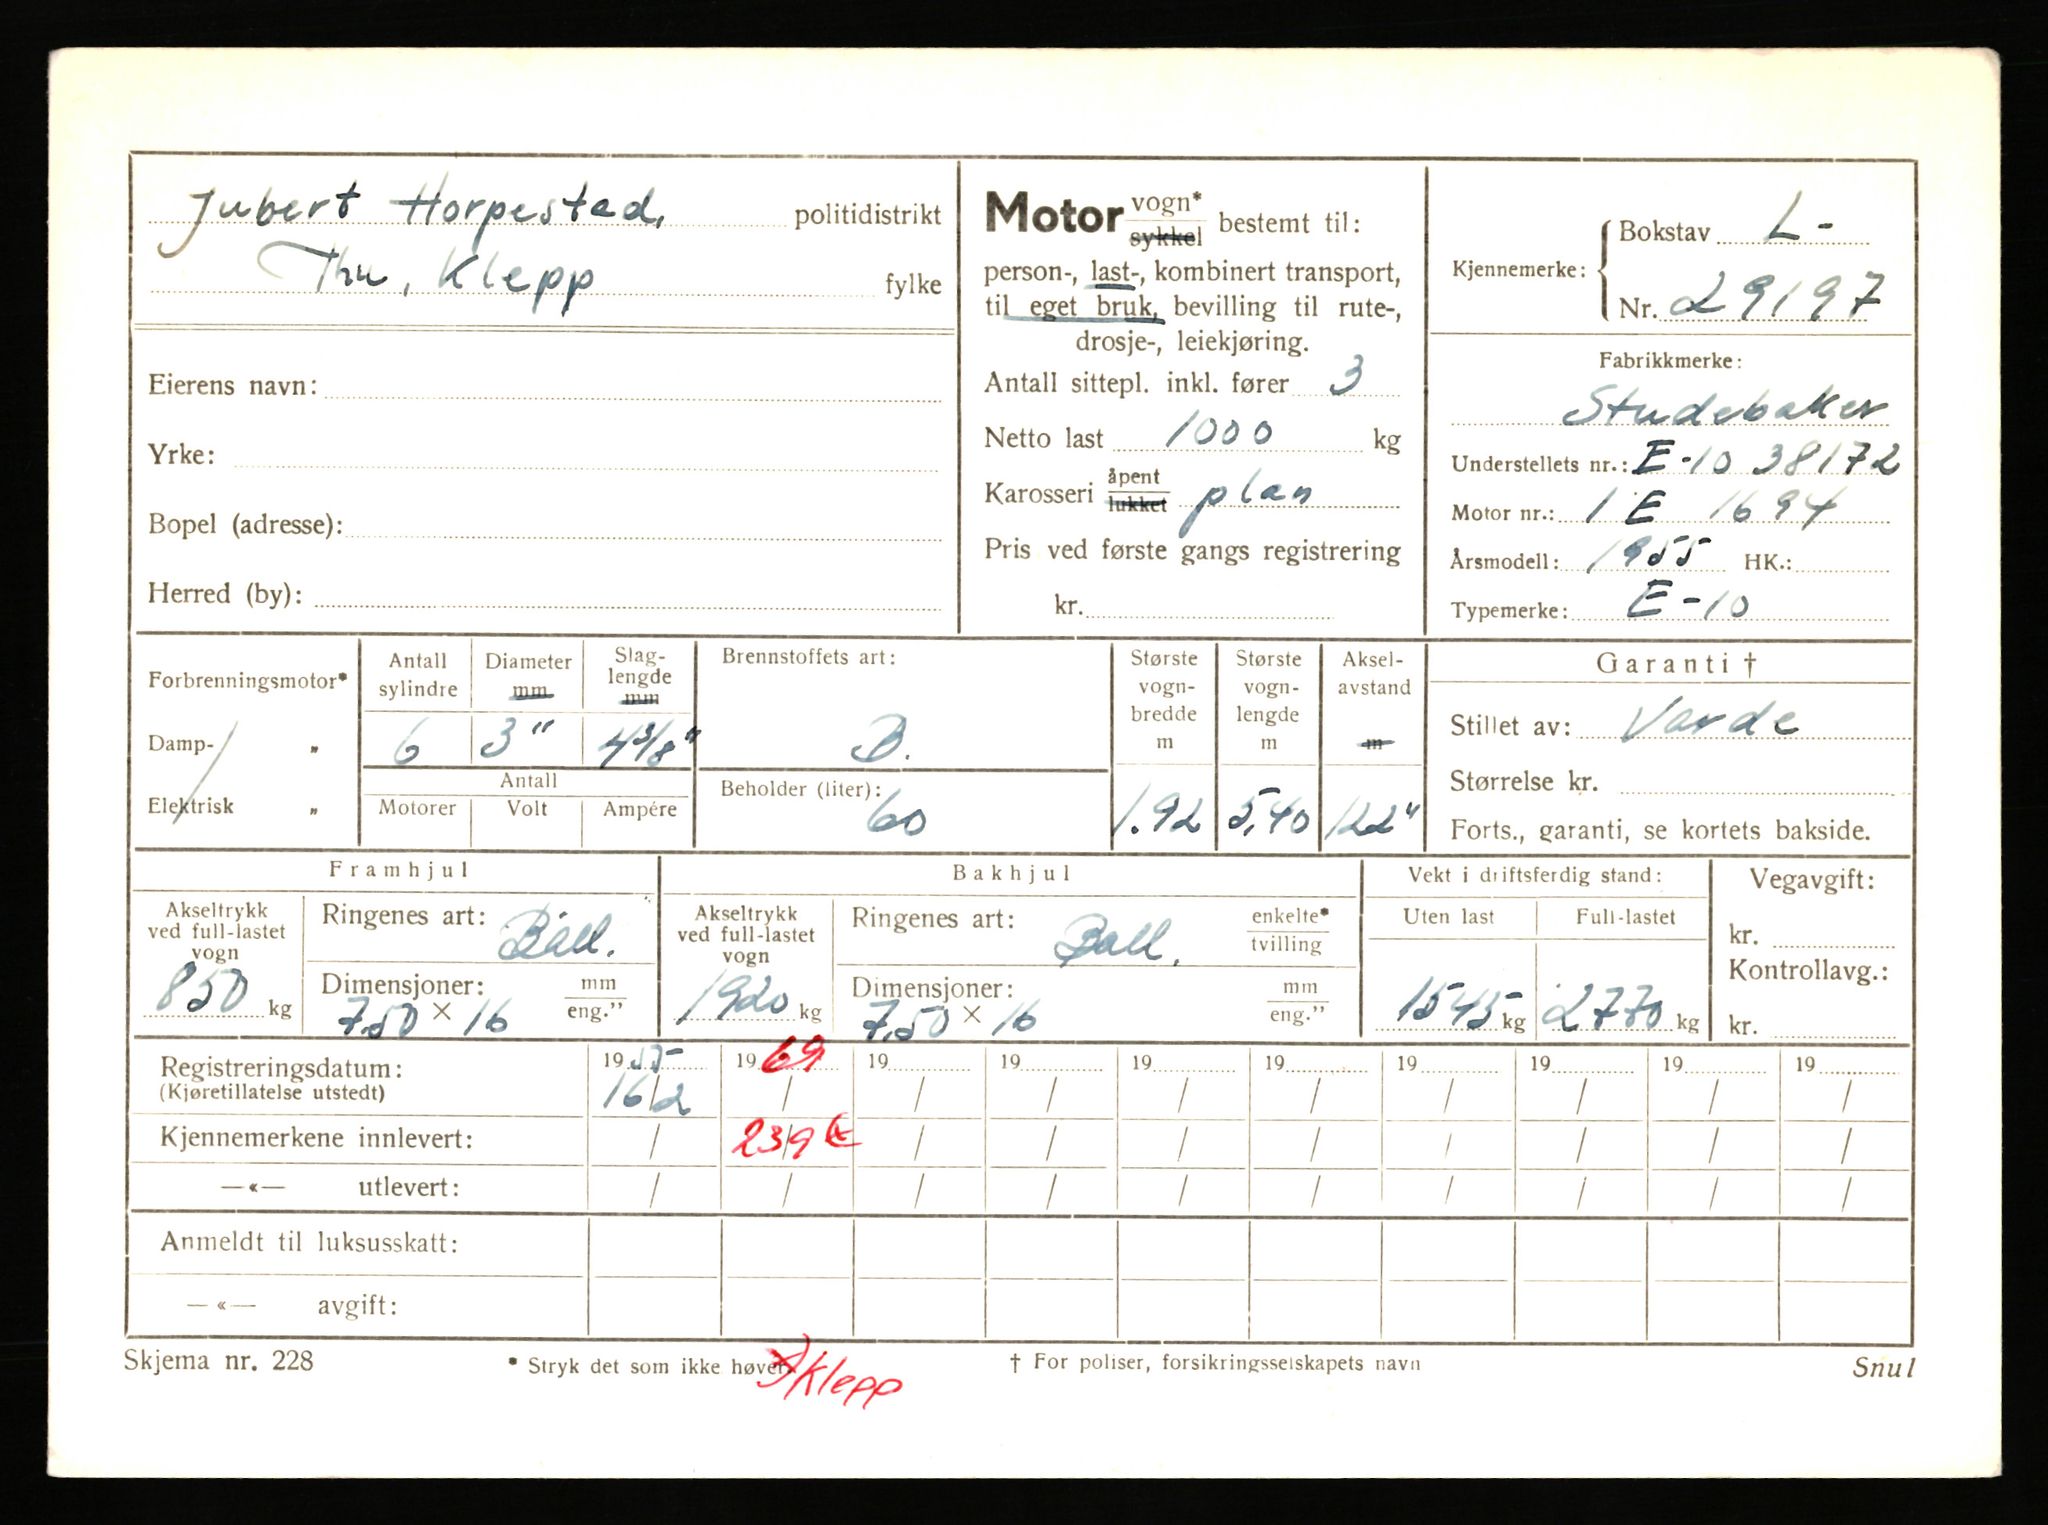 Jubert Horpestad, politidistrikt
Thu, Klepp fylke
Eierens navn:
Yrke:
Bopel (adresse):
Herred (by):
Motor vogn* sykkel bestemt til:
person-, last-, kombinert transport,
til eget bruk, bevilling til rute-,
drosje-, leiekjøring.
Antall sittepl. inkl. fører 3
Netto last 1000 kg
Karosseri åpent lukket plan
Pris ved første gangs registrering
kr.
Kjennemerke: Bokstav L-
Nr. 29197
Fabrikkmerke:
Studebaker
Understellets nr.: E-10 38172
Motor nr.: 1 E 1694
Årsmodell: 1955 HK.:
Typemerke: E-10
Forbrenningsmotor*
Damp- „
Elektrisk „
Antall sylindre
Diameter mm
Slaglengde mm
6 3" 4 3/8"
Antall
Motorer Volt Ampére
Brennstoffets art:
B.
Beholder (liter):
60
Største vognbredde m
1.92
Største vognlengde m
5,40
Akselavstand m
122"
Garanti †
Stillet av: Varde
Størrelse kr.
Forts., garanti, se kortets bakside.
Framhjul
Akseltrykk ved full-lastet vogn
850 kg
Ringenes art: Ball.
Dimensjoner: mm eng."
7.50 × 16
Bakhjul
Akseltrykk ved full-lastet vogn
1920 kg
Ringenes art: Ball. enkelte* tvilling
Dimensjoner: mm eng."
7.50 × 16
Vekt i driftsferdig stand:
Uten last Full-lastet
1545 kg 2770 kg
Vegavgift:
kr.
Kontrollavg.:
kr.
Registreringsdatum: 1955 1969 19 19 19 19 19 19 19 19
(Kjøretillatelse utstedt) 16/2 / / / / / / / / /
Kjennemerkene innlevert: / 23/9 / / / / / / / /
—«— utlevert: / / / / / / / / / /
Anmeldt til luksusskatt:
—«— avgift:
Skjema nr. 228 * Stryk det som ikke høver. † For poliser, forsikringsselskapets navn Snul
Klepp